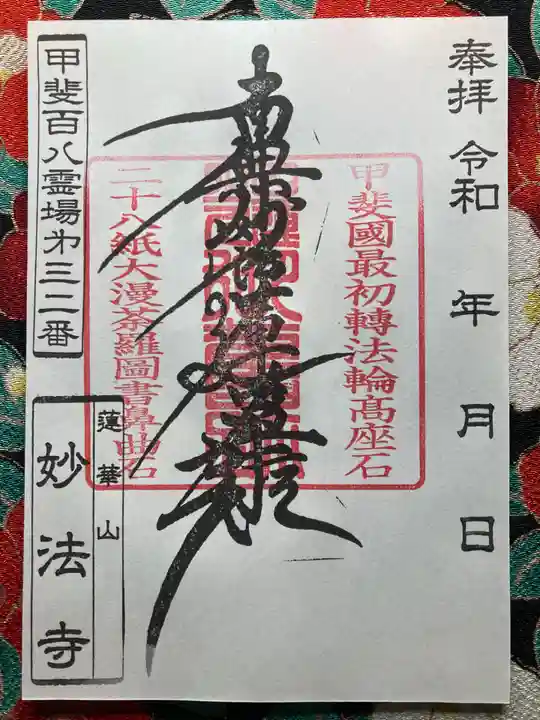 奉拝 令和 年 月 日
甲斐國最初轉法輪髙座石
南無妙法蓮華経
二十八紙大漫荼羅圖書鼻曲石
甲斐百八霊場第三二番
蓮華山
妙法寺